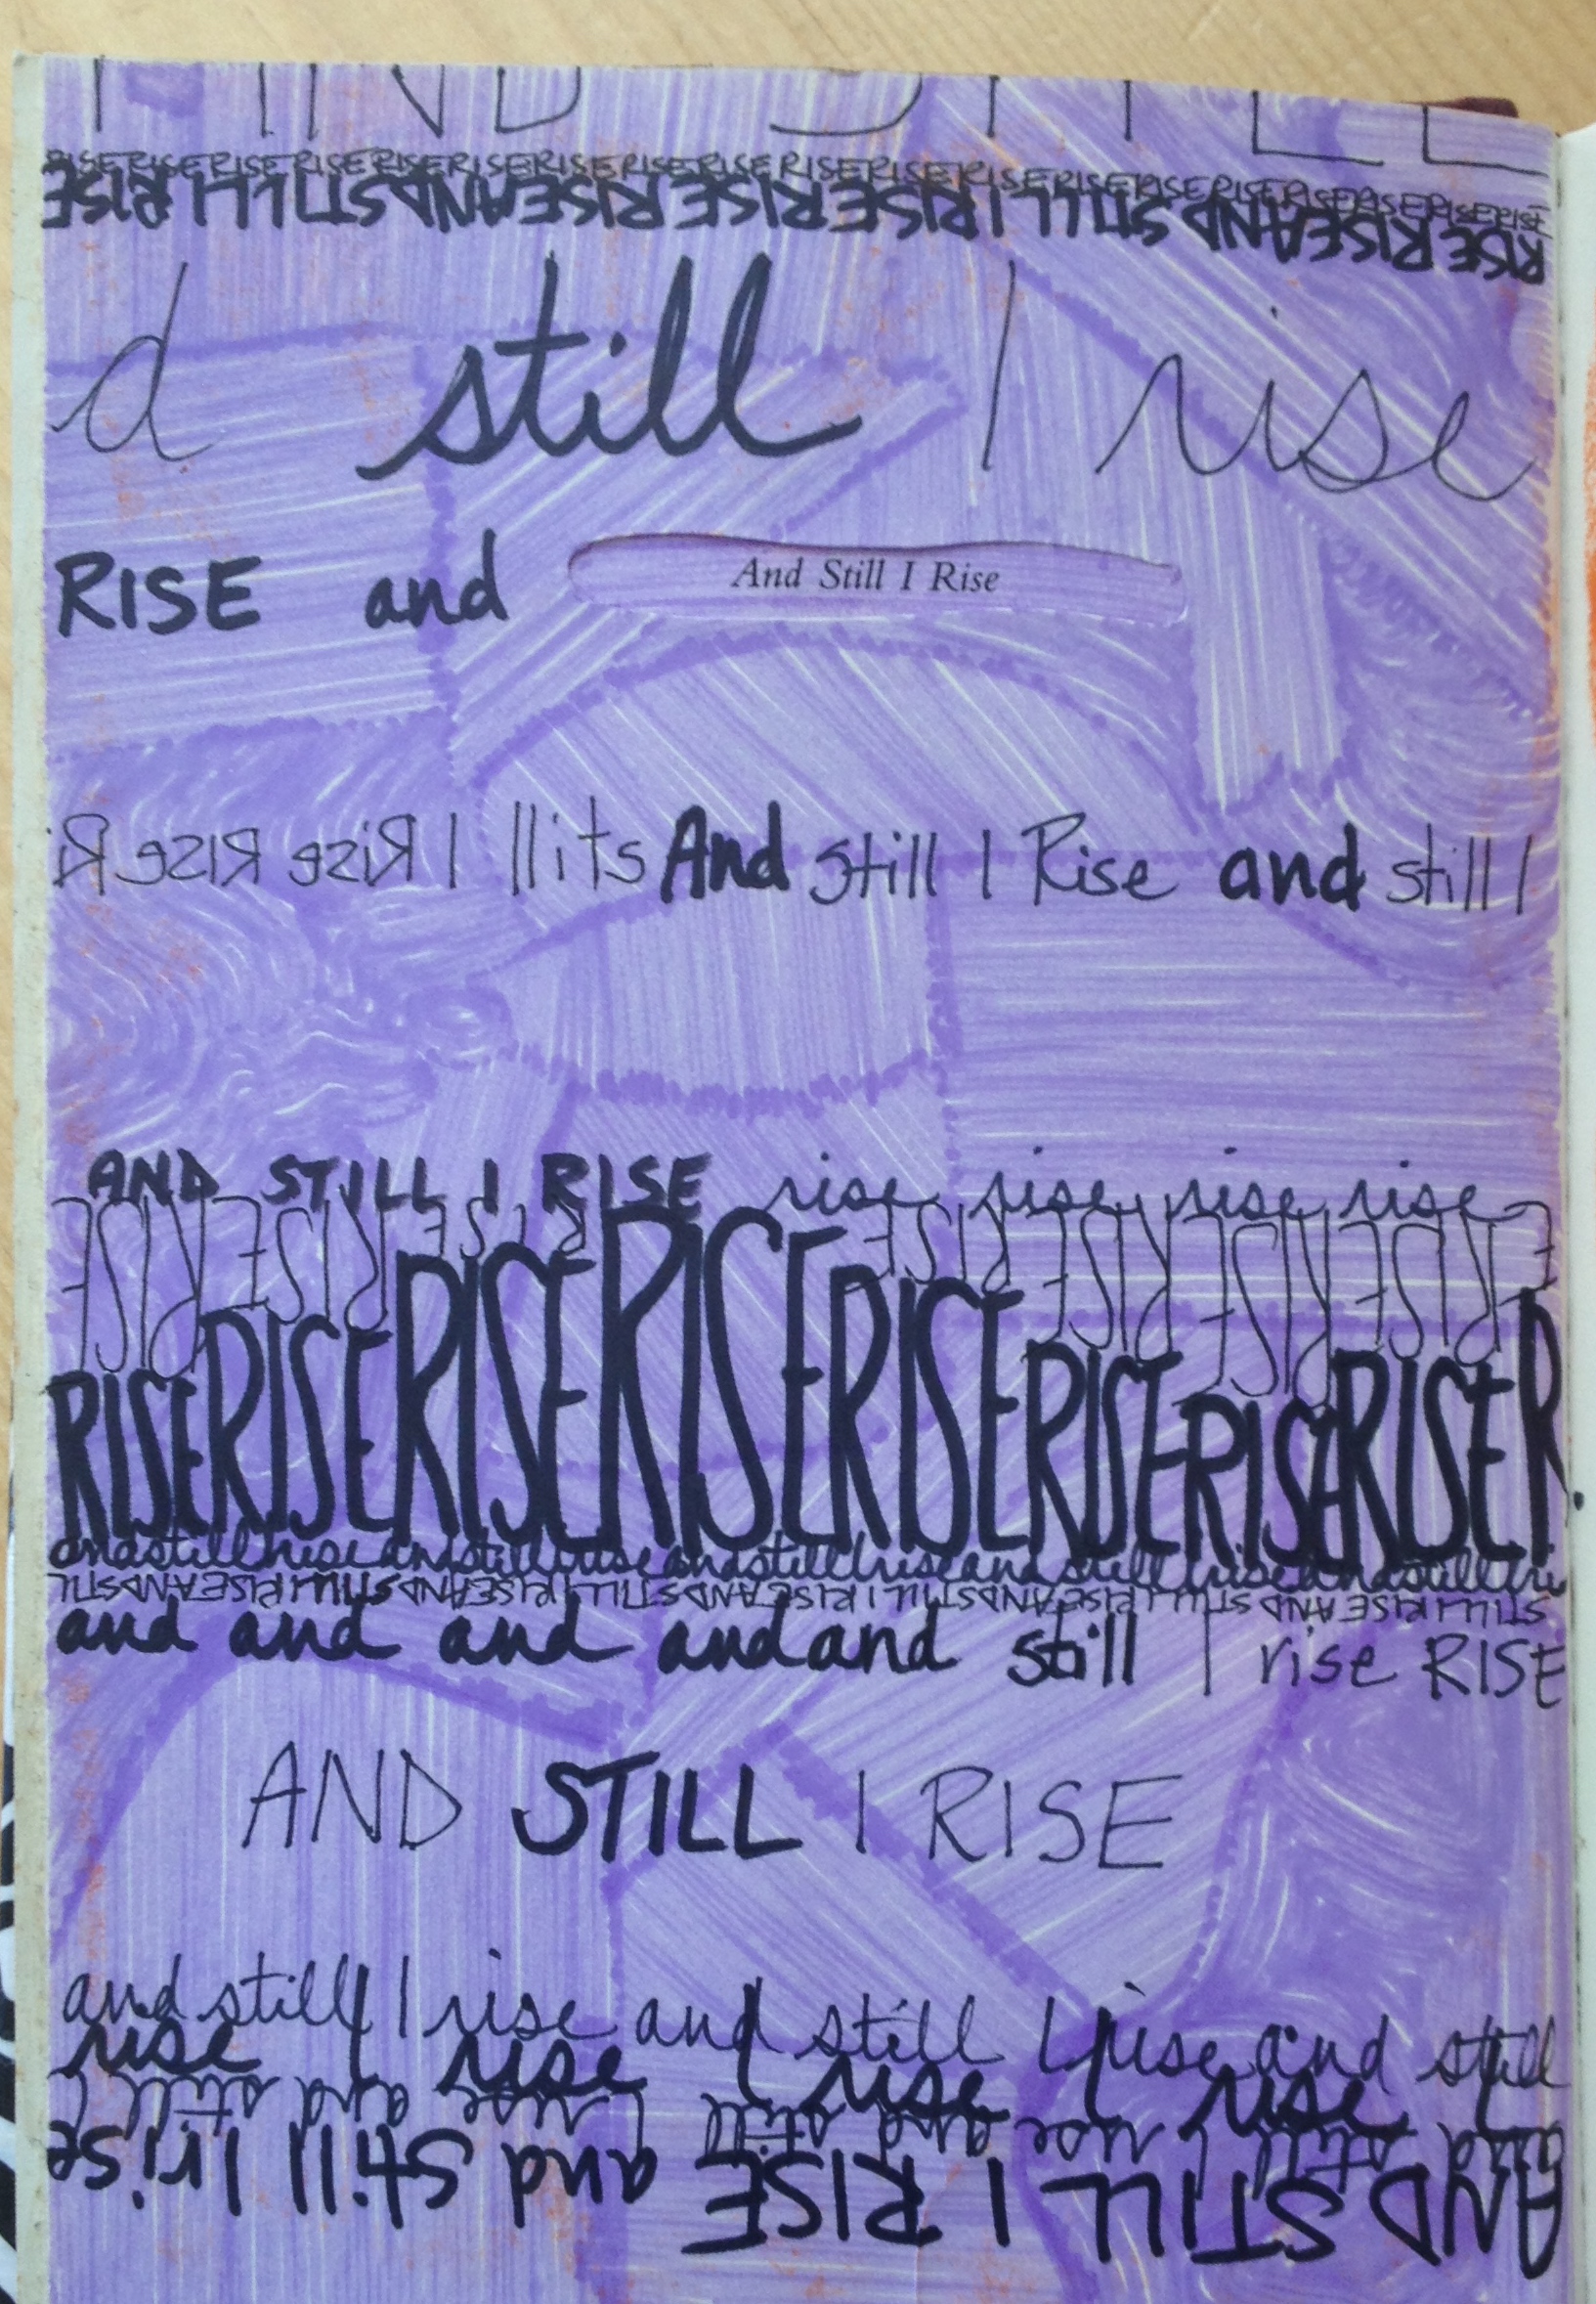 AND STILL
RISE RISE RISE RISE RISE RISE RISE RISE RISE RISE RISE RISE RISE RISE RISE RISE RISE RISE RISE
RISE RISE AND STILL I RISE RISE RISE AND STILL I RISE
d still I rise
RISE and And Still I Rise
iR Rise Rise I llits And still I Rise and still I
AND STILL I RISE rise rise rise rise
RISE RISE RISE RISE RISE RISE RISE
RISERISERISERISERISERISERISERISER
andstillIriseandstillIriseandstillIriseandstillIriseandstillIri
STILL I RISE AND STILL I RISE AND STILL I RISE AND STILL I RISE AND STILL I RISE AND STIL
and and and andand still I rise RISE
AND STILL I RISE
and still I rise and still I rise and still
rise I rise I rise I rise I
and still I rise and still I rise and still I
AND STILL I RISE and still I rise